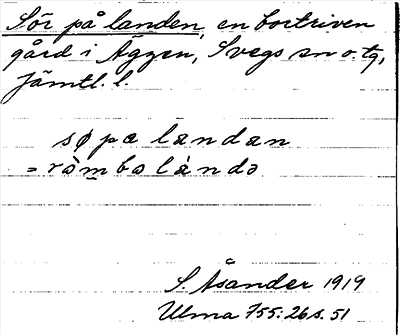 Sör på landen, en bortriven
gård i Äggen, Svegs sn o. tg,
Jämtl. l.
søpa landan
= ràmbo làndə
S. Åsander 1919
Ulma 755:26 s. 51